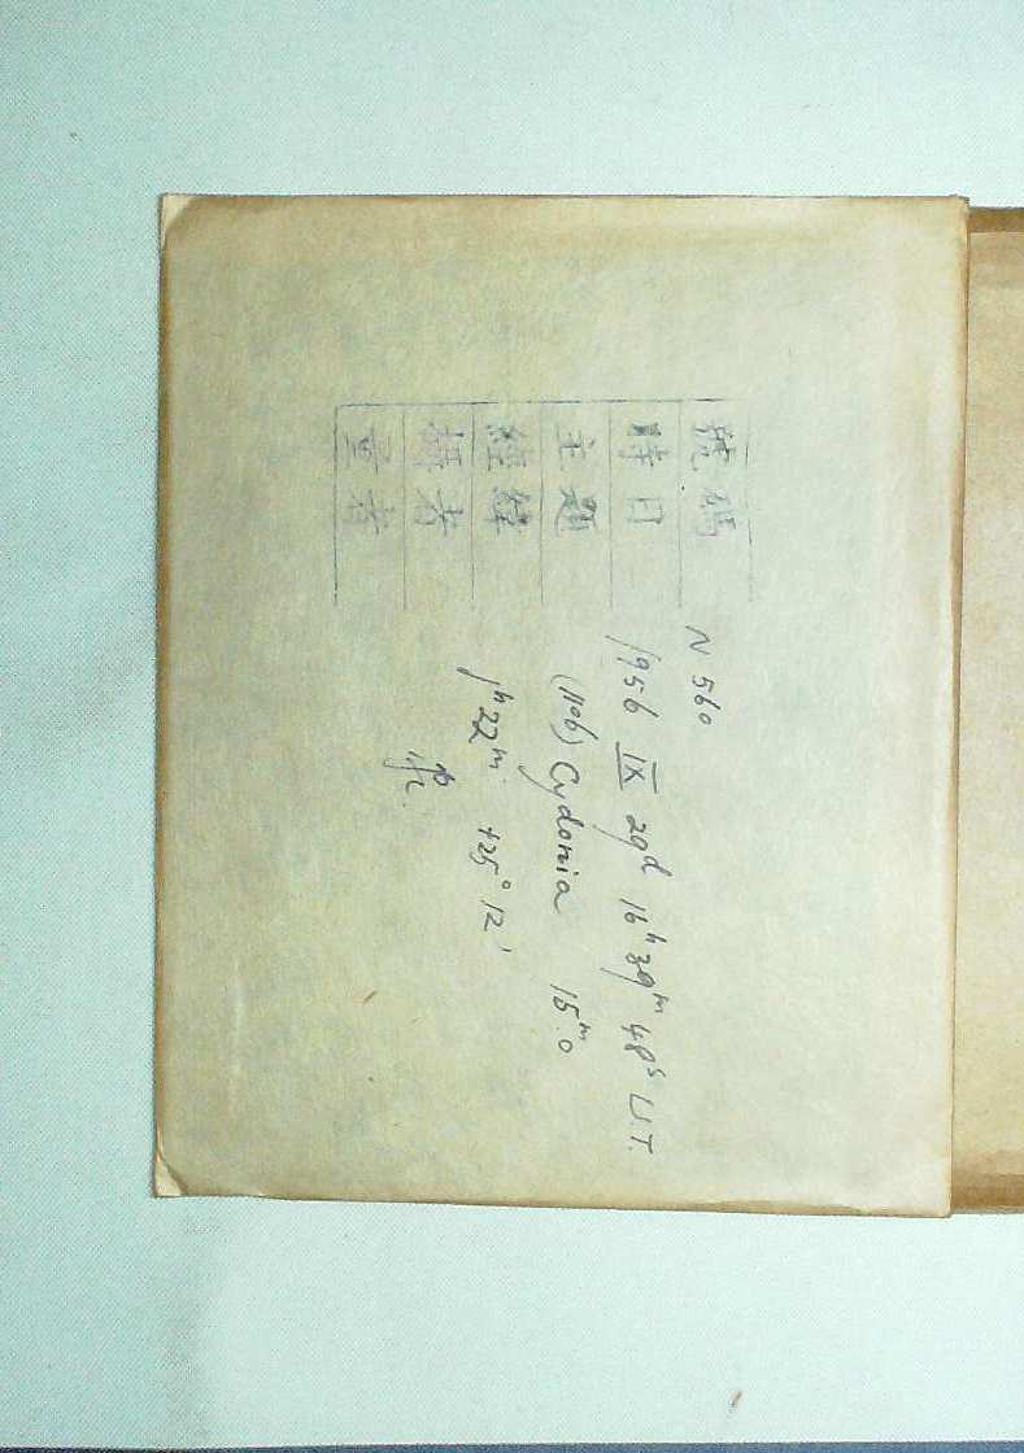 號碼 N 560
時日 1956 IX 29d 16h 39m 48s U.T.
主題 (1106) Cydonia 15m.0
經緯 1h 22m. +25° 12'
攝者
量者